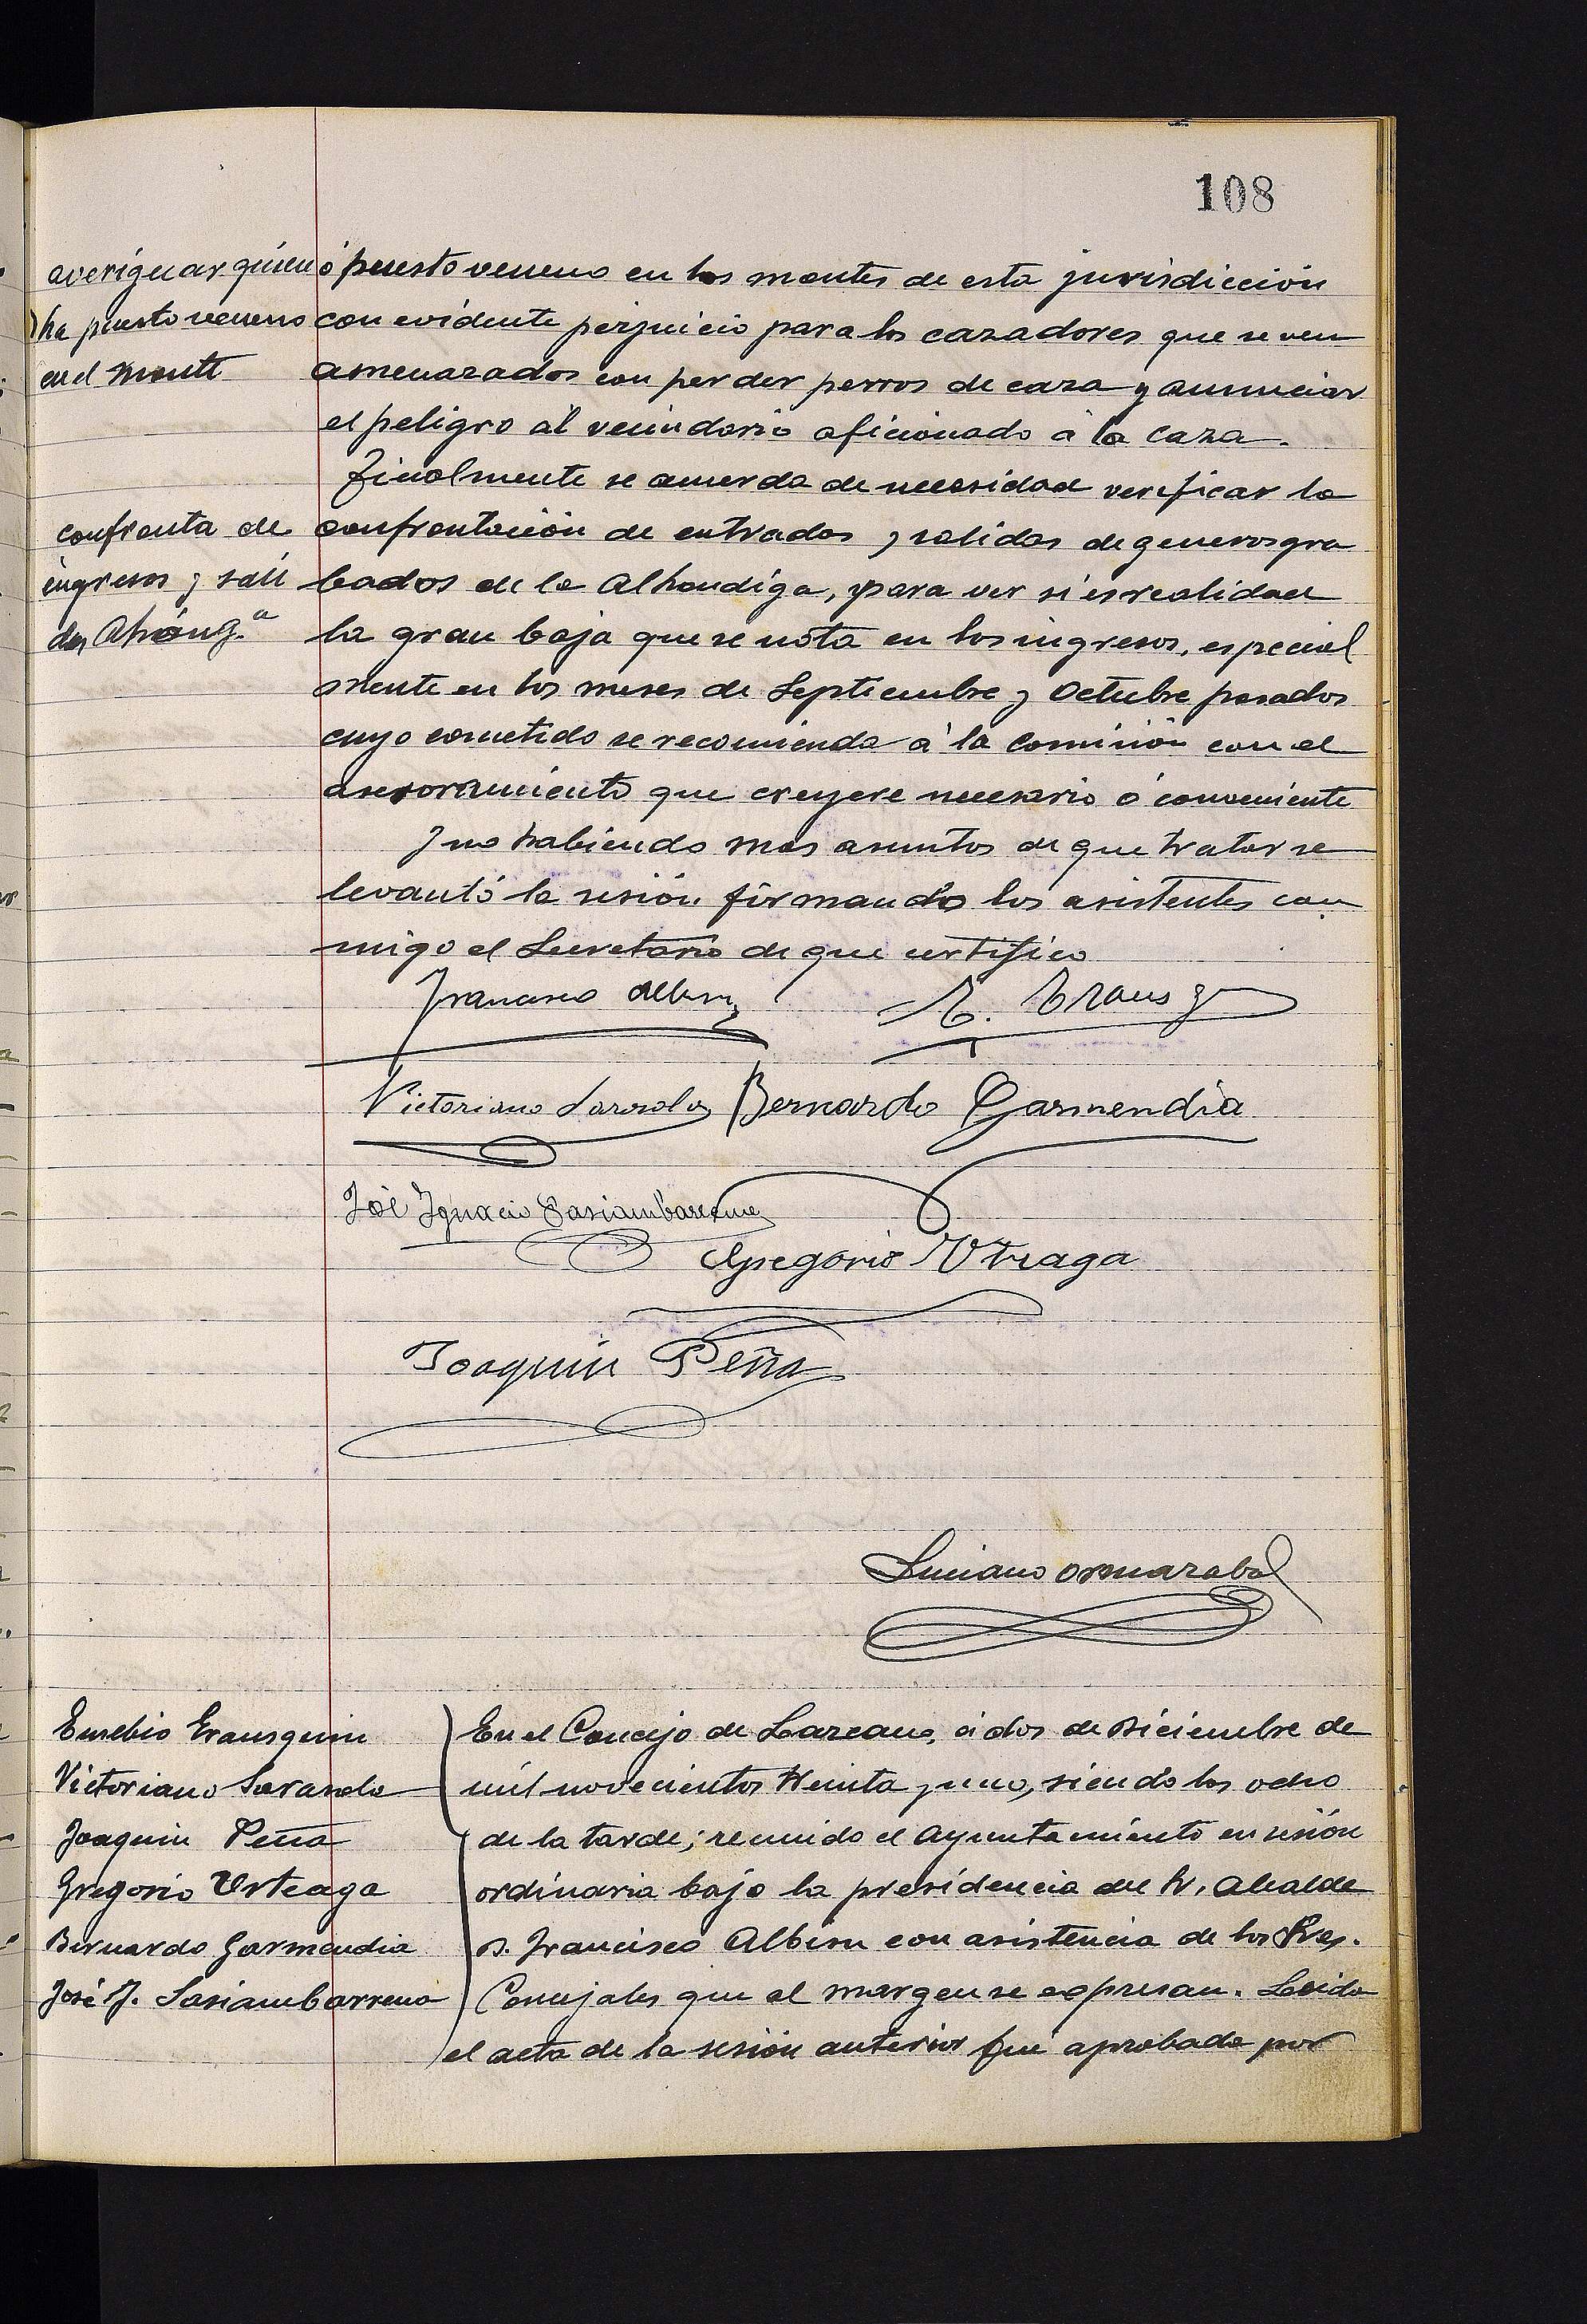 108
averiguar quien
ha puesto veneno
en el monte
ó puesto veneno en los montes de esta jurisdicción
con evidente perjuicio para los cazadores que se ven
amenazados con perder perros de caza y anunciar
el peligro al vecindario aficionado á la caza.
Finalmente se acuerda de necesidad verificar la
confronta de
ingresos y sali
das Alhóndg.ª
confrontación de entradas y salidas de generos gra
bados de la Alhondiga, para ver si es realidad
la gran baja que se nota en los ingresos, especial
mente en los meses de Septiembre y Octubre pasados
cuyo cometido se recomienda á la Comisión con el
asesoramiento que creyere necesario ó conveniente
Y no habiendo mas asuntos de que tratar se
levantó la sesión firmando los asistentes con
migo el Secretario de que certifico
Francisco Albisu E. Erausq
Victoriano Larzola Bernardo Garmendia
José Ignacio Sasiambarrena
Gregorio Urteaga
Joaquin Peña
Luciano Ormazabal
Eusebio Erausquin
Victoriano Sarasola
Joaquin Peña
Gregorio Urteaga
Bernardo Garmendia
José I. Sasiambarrena
En el Concejo de Lazcano, á dos de Diciembre de
mil novecientos treinta y uno, siendo las ocho
de la tarde; reunido el Ayuntamiento en sesión
ordinaria bajo la presidencia del Sr. Alcalde
D. Francisco Albisu con asistencia de los Sres.
Concejales que al margen se expresan. Leida
el acta de la sesión anterior fué aprobada por